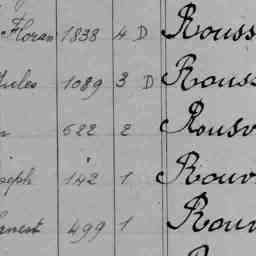 Floran 1838 4 D Rouss
Jules 1089 3 D Rouss
622 2 Rousv
seph 142 1 Rouv
rnest 499 1 Rouv